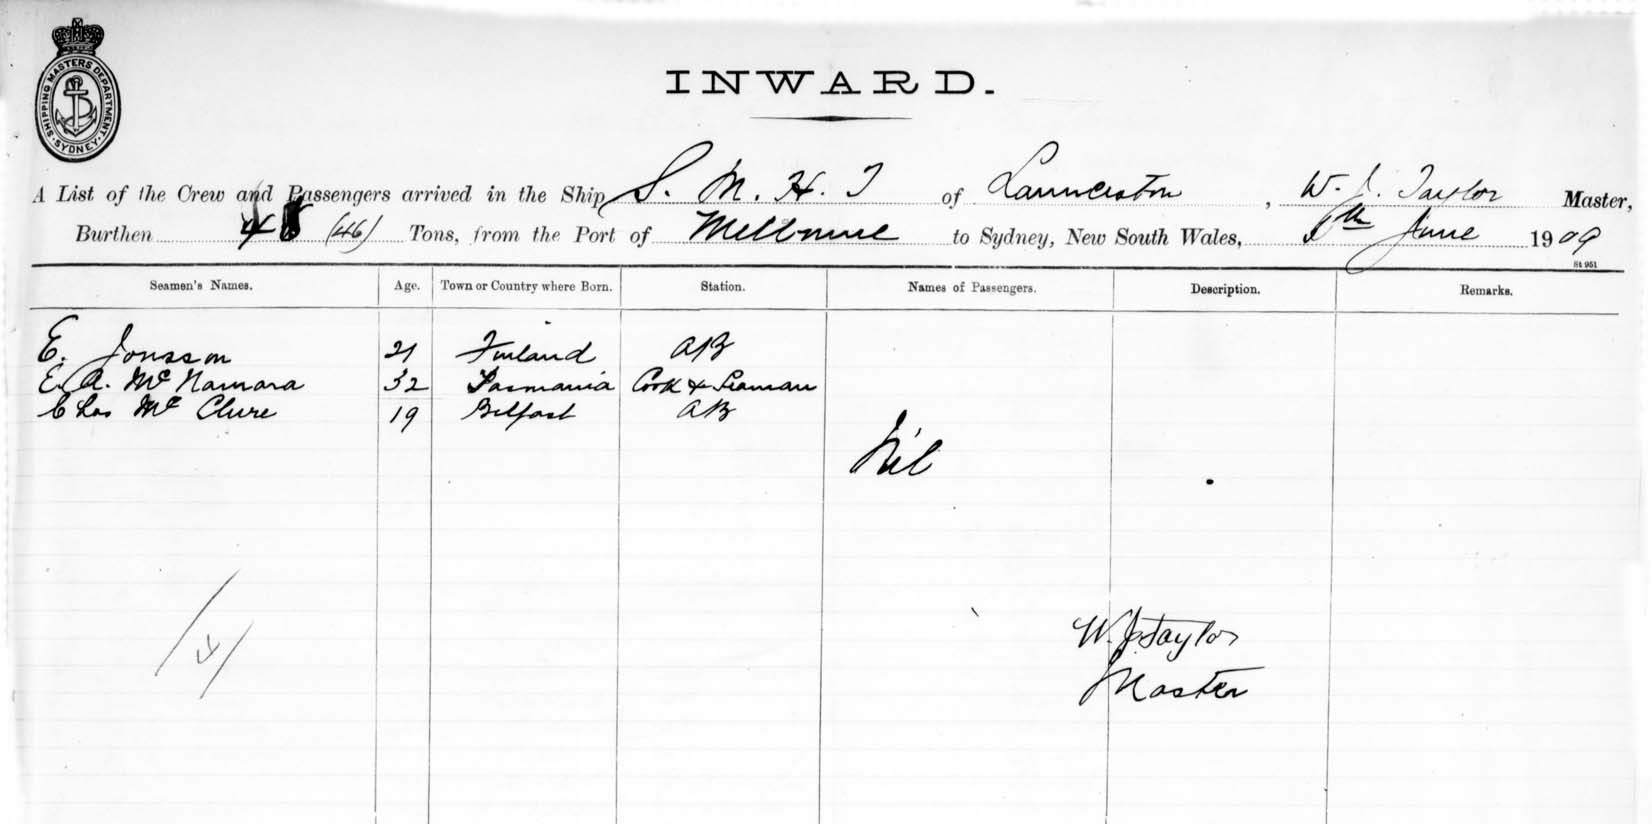 SHIPPING MASTERS DEPARTMENT. SYDNEY.
INWARD.
A List of the Crew and Passengers arrived in the Ship S. M. H. T of Launceston, W. J. Taylor Master,
Burthen (46) Tons, from the Port of Melbourne to Sydney, New South Wales, 6th June 1909
St 951
Seamen's Names. Age. Town or Country where Born. Station. Names of Passengers. Description. Remarks.
E. Jonsson 21 Finland AB
E. A. Mc Namara 32 Tasmania Cook & Seaman
Chas Mc Clure 19 Belfast AB
Nil
W. J. Taylor
Master